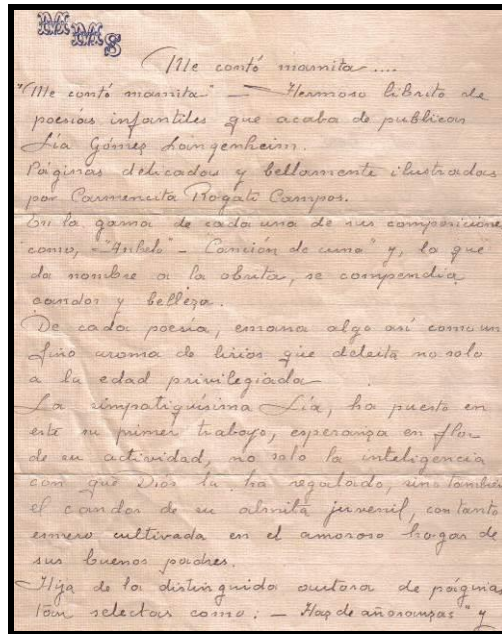 MMS
Me contó mamita....
"Me contó mamita" — Hermoso librito de
poesías infantiles que acaba de publicar
Lía Gómez Langenheim.
Páginas delicadas y bellamente ilustradas
por Carmencita Rogati Campos.
En la gama de cada una de sus composiciones
como, "Anhelo" - Canción de cuna" y, la que
da nombre a la obrita, se compendia
candor y belleza.
De cada poesía, emana algo así como un
fino aroma de lirios que deleita no solo
a la edad privilegiada
La simpatiquísima Lía, ha puesto en
este su primer trabajo, esperanza en flor
de su actividad, no solo la inteligencia
con que Dios la ha regalado, sino también
el candor de su almita juvenil, con tanto
esmero cultivada en el amoroso hogar de
sus buenos padres.
Hija de la distinguida autora de páginas
tan selectas como: — Haz de añoranzas" y